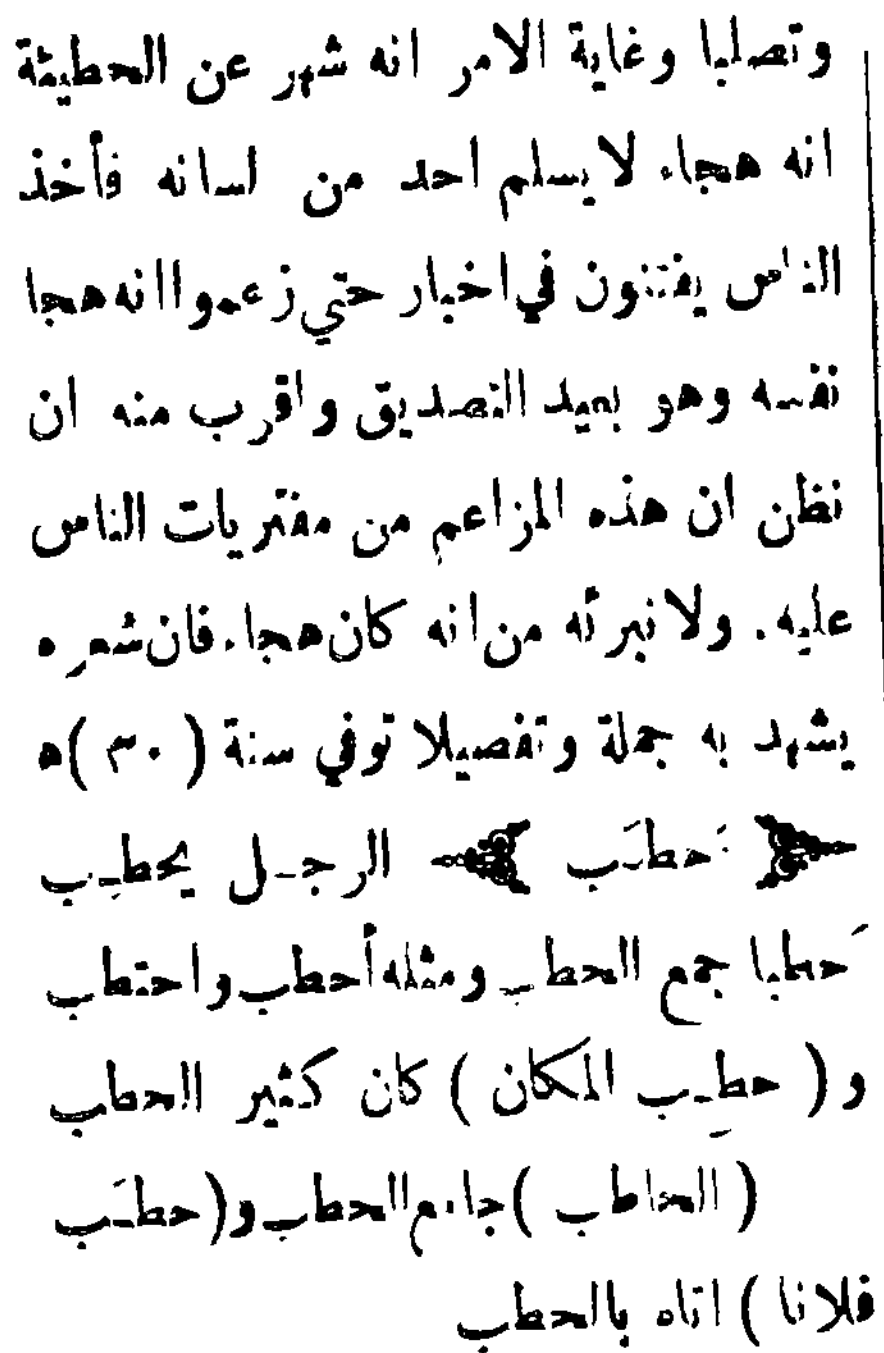 وتصلبا وغاية الامر انه شهر عن الحطيئة
انه هجاء لا يسلم احد من لسانه فأخذ
الناس يفتنون في اخبار حتي زعموا انه هجا
نفسه وهو بعيد التصديق واقرب منه ان
نظن ان هذه المزاعم من مفتريات الناس
عليه . ولا نبرئه من انه كان هجاء فان شعره
يشهد به جملة وتفصيلا توفي سنة (٣٠) ه
﴿ حطَب ﴾ الرجل يحطِب
حَطبا جمع الحطب ومثله أحطب واحتطب
و ( حطِب المكان ) كان كثير الحطب
( الحاطب ) جامع الحطب و ( حطَب
فلانا ) اتاه بالحطب